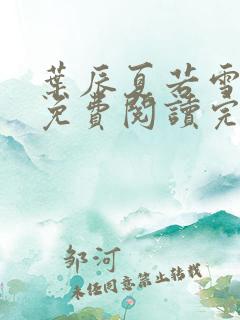 葉辰夏若雪
免費閱讀完
邹河
未经同意禁止转载